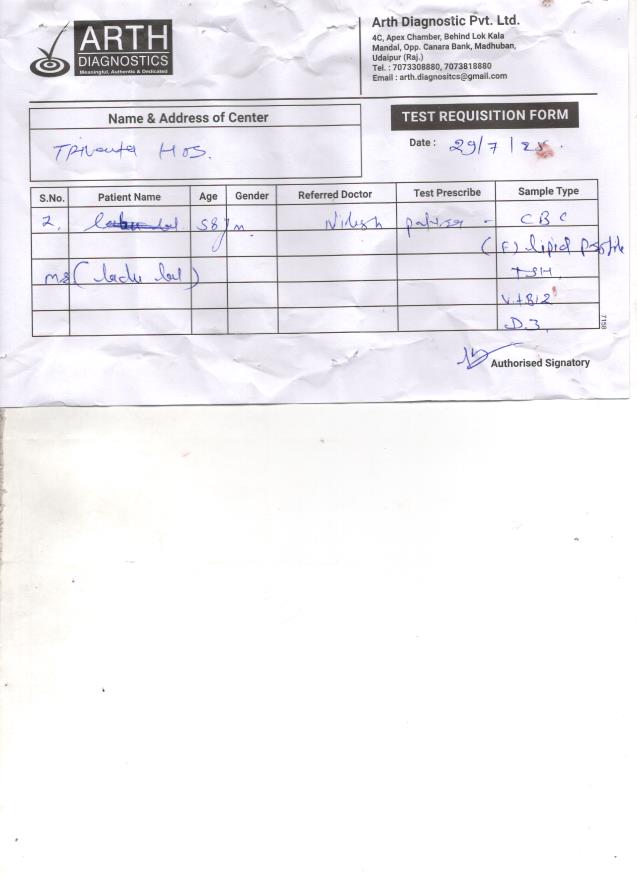 ARTH
DIAGNOSTICS
Meaningful, Authentic & Dedicated
Arth Diagnostic Pvt. Ltd.
4C, Apex Chamber, Behind Lok Kala
Mandal, Opp. Canara Bank, Madhuban,
Udaipur (Raj.)
Tel. : 7073308880, 7073818880
Email : arth.diagnositcs@gmail.com
Name & Address of Center
TEST REQUISITION FORM
Date : 29/7/25.
HOS.
S.No. Patient Name Age Gender Referred Doctor Test Prescribe Sample Type
2. 58y m. Nilesh CBC
(F) lipid profile
(ladu lal)
TSH
Vit B12
D.3,
7158
Authorised Signatory